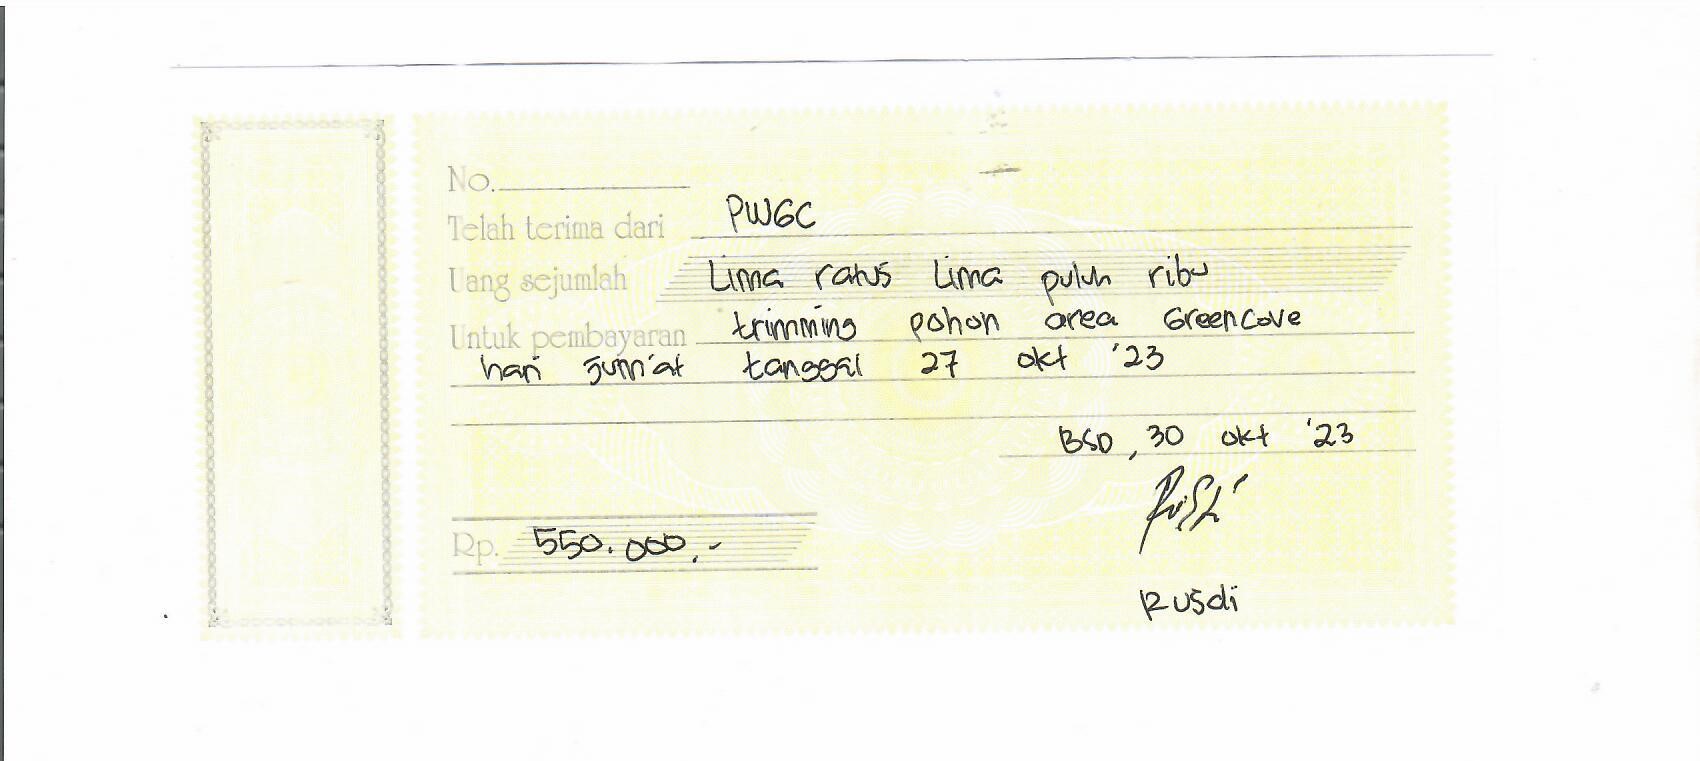 No.
Telah terima dari PWGC
Uang sejumlah Lima ratus Lima puluh ribu
Untuk pembayaran trimming pohon area GreenCove
hari Jum'at tanggal 27 okt '23
BSD, 30 okt '23
Rp. 550.000,-
Rusdi